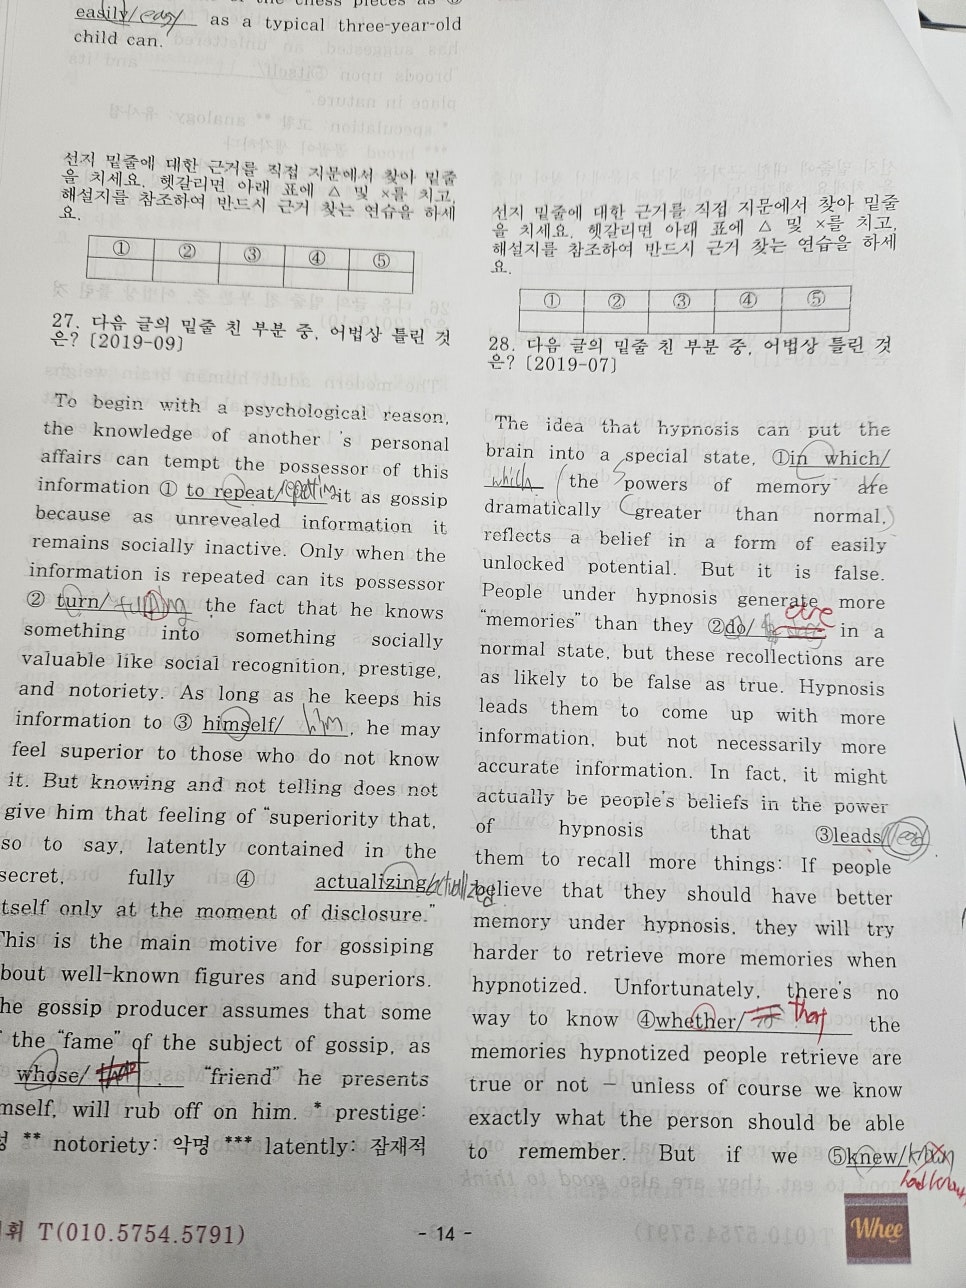 easily/easy as a typical three-year-old
child can.
선지 밑줄에 대한 근거를 직접 지문에서 찾아 밑줄
을 치세요. 헷갈리면 아래 표에 △ 및 ×를 치고,
해설지를 참조하여 반드시 근거 찾는 연습을 하세
요.
① ② ③ ④ ⑤
27. 다음 글의 밑줄 친 부분 중, 어법상 틀린 것
은? [2019-09]
To begin with a psychological reason,
the knowledge of another 's personal
affairs can tempt the possessor of this
information ① to repeat/repeating it as gossip
because as unrevealed information it
remains socially inactive. Only when the
information is repeated can its possessor
② turn/turning the fact that he knows
something into something socially
valuable like social recognition, prestige,
and notoriety. As long as he keeps his
information to ③ himself/ him, he may
feel superior to those who do not know
it. But knowing and not telling does not
give him that feeling of “superiority that,
so to say, latently contained in the
secret, fully ④ actualizing/actualized
tself only at the moment of disclosure.”
This is the main motive for gossiping
bout well-known figures and superiors.
he gossip producer assumes that some
the “fame” of the subject of gossip, as
whose/ that “friend” he presents
mself, will rub off on him. * prestige:
** notoriety: 악명 *** latently: 잠재적
선지 밑줄에 대한 근거를 직접 지문에서 찾아 밑줄
을 치세요. 헷갈리면 아래 표에 △ 및 ×를 치고,
해설지를 참조하여 반드시 근거 찾는 연습을 하세
요.
① ② ③ ④ ⑤
28. 다음 글의 밑줄 친 부분 중, 어법상 틀린 것
은? [2019-07]
The idea that hypnosis can put the
brain into a special state, ①in which/
which the powers of memory are
dramatically greater than normal,
reflects a belief in a form of easily
unlocked potential. But it is false.
People under hypnosis generate more
“memories” than they ②do/ are in a
normal state, but these recollections are
as likely to be false as true. Hypnosis
leads them to come up with more
information, but not necessarily more
accurate information. In fact, it might
actually be people's beliefs in the power
of hypnosis that ③leads/lead
them to recall more things: If people
believe that they should have better
memory under hypnosis, they will try
harder to retrieve more memories when
hypnotized. Unfortunately, there's no
way to know ④whether/ that the
memories hypnotized people retrieve are
true or not - unless of course we know
exactly what the person should be able
to remember. But if we ⑤knew/
휘 T(010.5754.5791)
- 14 -
Whee